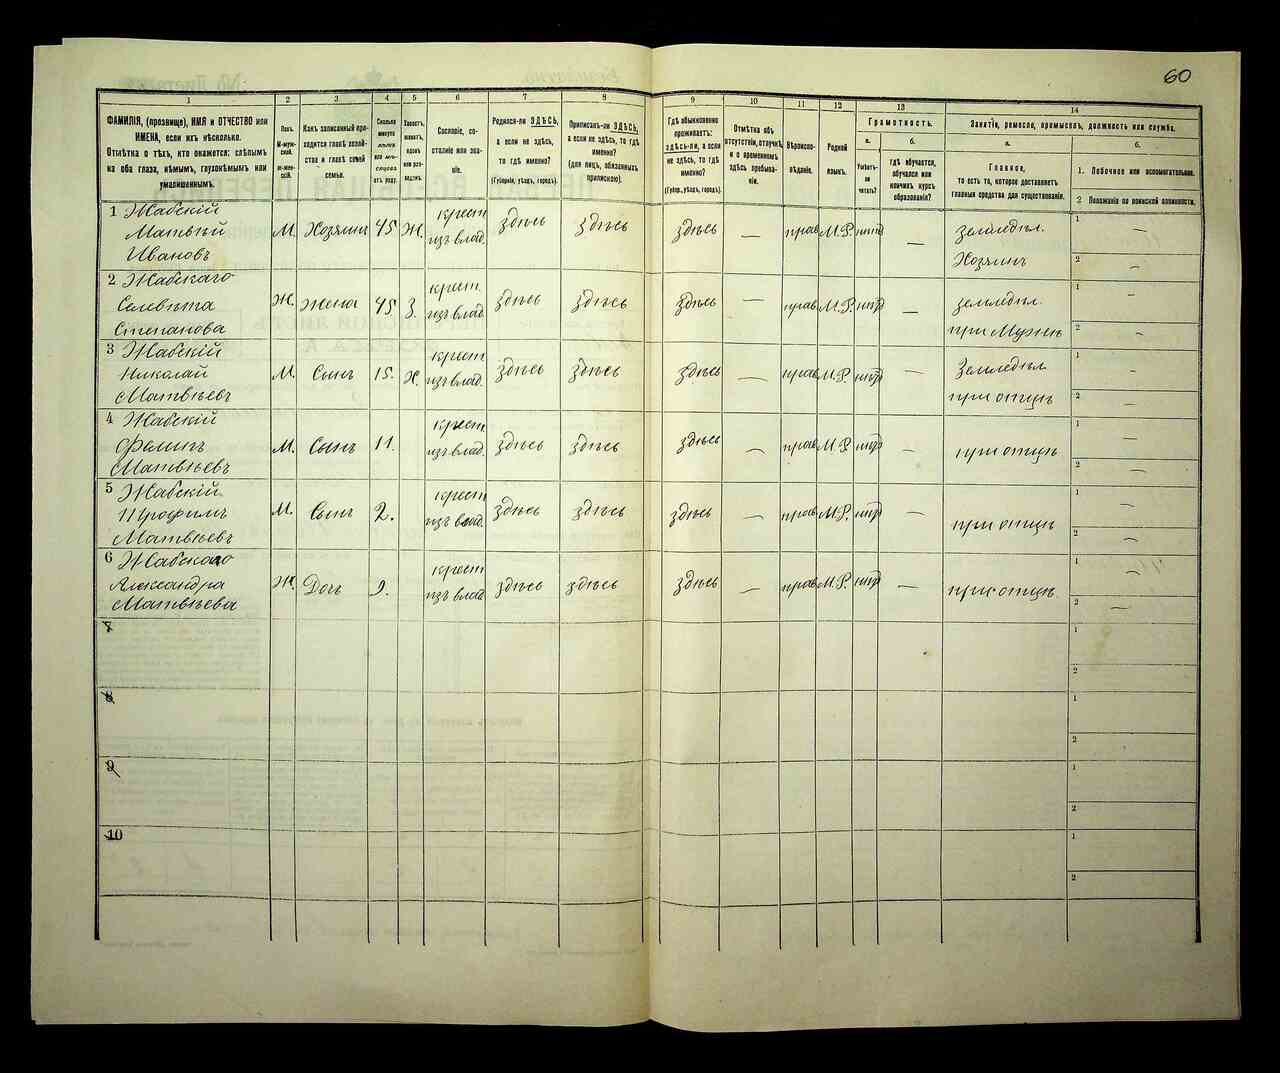 60
1 2 3 4 5 6 7 8 9 10 11 12 13 14
ФАМИЛІЯ, (прозвище), ИМЯ и ОТЧЕСТВО или
ИМЕНА, если ихъ нѣсколько.
Отмѣтка о тѣхъ, кто окажется: слѣпымъ
на оба глаза, нѣмымъ, глухонѣмымъ или
умалишеннымъ.
Полъ.
М-муж-
ской.
Ж-жен-
скій.
Какъ записанный при-
ходится главѣ хозяй-
ства и главѣ своей
семьи.
Сколько
минуло
лѣтъ
или мѣ-
сяцевъ
отъ роду.
Холостъ,
женатъ,
вдовъ
или раз-
веденъ.
Сословіе, со-
стояніе или зва-
ніе.
Родился-ли ЗДѢСЬ,
а если не здѣсь,
то гдѣ именно?
(Губернія, уѣздъ, городъ).
Приписанъ-ли ЗДѢСЬ,
а если не здѣсь, то гдѣ
именно?
(для лицъ, обязанныхъ
припискою).
Гдѣ обыкновенно
проживаетъ:
ЗДѢСЬ-ли, а если
не здѣсь, то гдѣ
именно?
(Губерн., уѣздъ, городъ).
Отмѣтка объ
отсутствіи, отлучкѣ
и о временномъ
здѣсь пребыва-
ніи.
Вѣроиспо-
вѣданіе.
Родной
языкъ.
Грамотность.
а.
Умѣетъ-
ли
читать?
б.
гдѣ обучается,
обучался или
кончилъ курсъ
образованія?
Занятіе, ремесло, промыселъ, должность или служба.
а.
Главное,
то есть то, которое доставляетъ
главныя средства для существованія.
б.
1. Побочное или вспомогательное.
2 Положеніе по воинской повинности.
1 Жабскій
Матвѣй
Ивановъ
М. Хозяинъ 45 Ж. крест
изъ влад. здѣсь здѣсь здѣсь — прав. М.Р. нѣтъ — земледѣл.
Хозяинъ
1 —
2 —
2 Жабскаго
Елевѣта
Степанова
Ж. Жена 45. З. крест.
изъ влад. здѣсь здѣсь здѣсь — прав. М.Р. нѣтъ — земледѣл.
при Мужѣ
1 —
2 —
3 Жабскій
Николай
Матвѣевъ
М. Сынъ 15. Х. крест
изъ влад. здѣсь здѣсь здѣсь — прав. М.Р. нѣтъ — Земледѣл
при отцѣ
1 —
2 —
4 Жабскій
Филипъ
Матвѣевъ
М. Сынъ 11. крест
изъ влад. здѣсь здѣсь здѣсь — прав. М.Р. нѣтъ — при отцѣ
1 —
2 —
5 Жабскій
Трофимъ
Матвѣевъ
М. Сынъ 2. крест
изъ влад. здѣсь здѣсь здѣсь — прав. М.Р. нѣтъ — при отцѣ
1 —
2 —
6 Жабскаго
Александра
Матвѣева
Ж. Доч 9. крест
изъ влад здѣсь здѣсь здѣсь — прав. М.Р. нѣтъ — при отцѣ
1 —
2 —
7
1
2
8
1
2
9
1
2
10
1
2